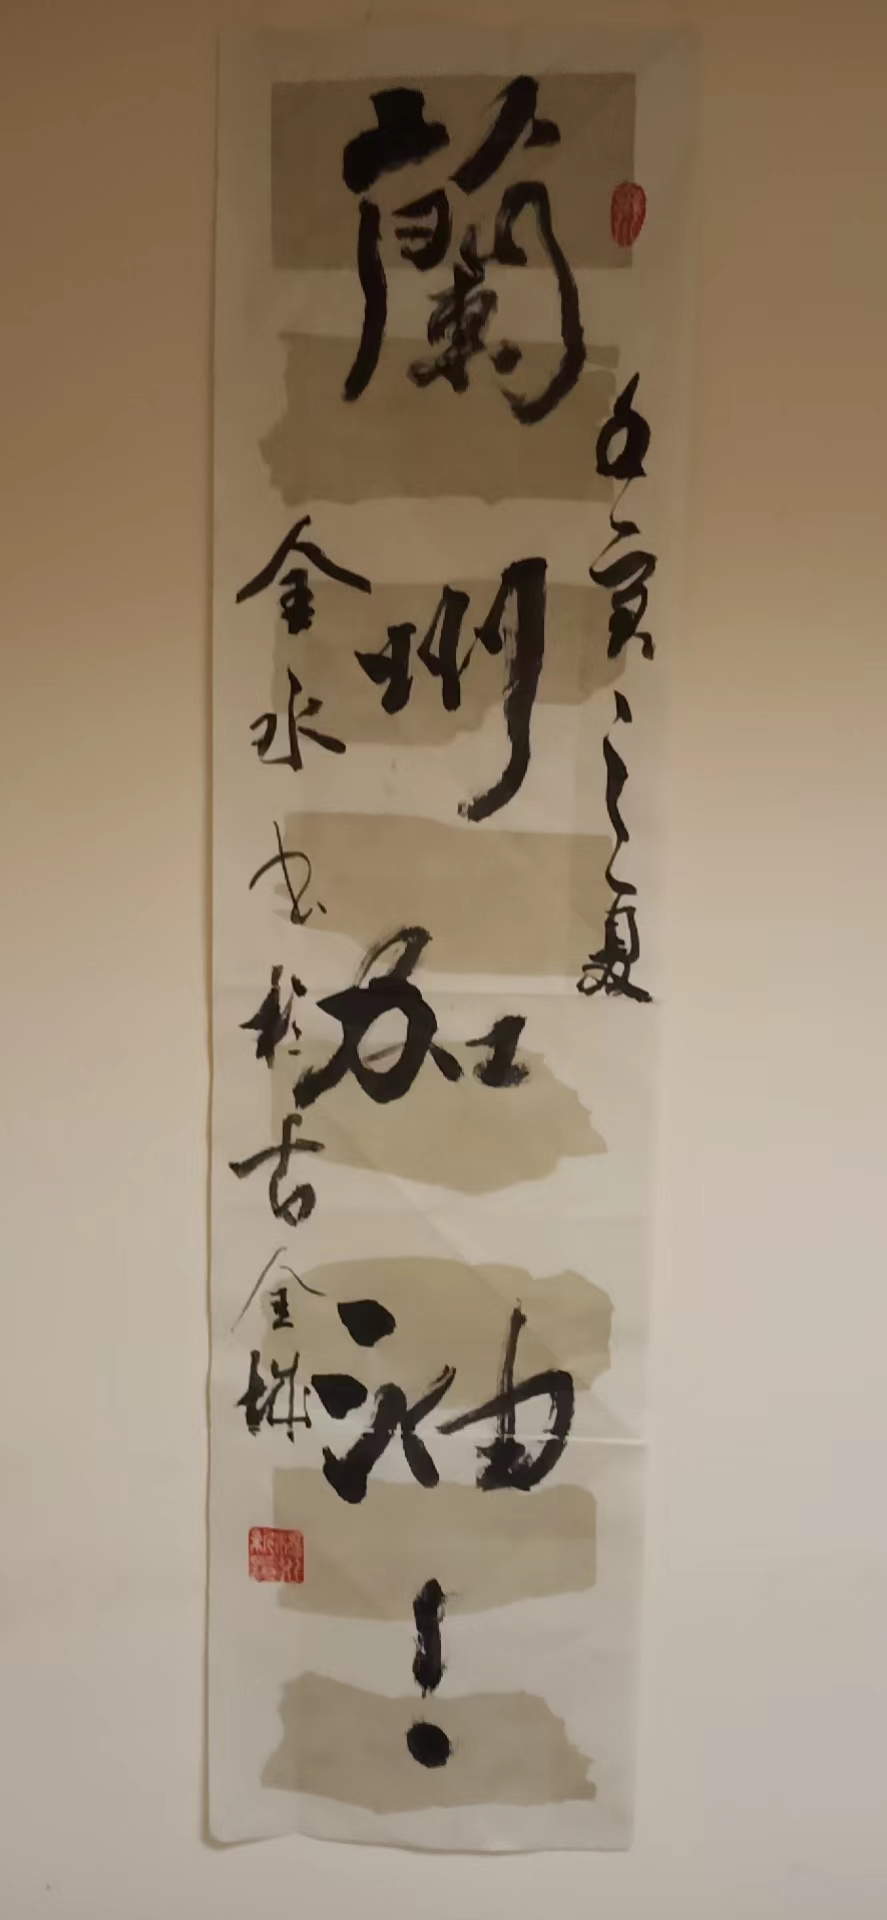 壬寅之夏
蘭州加油！
金水书於古金城